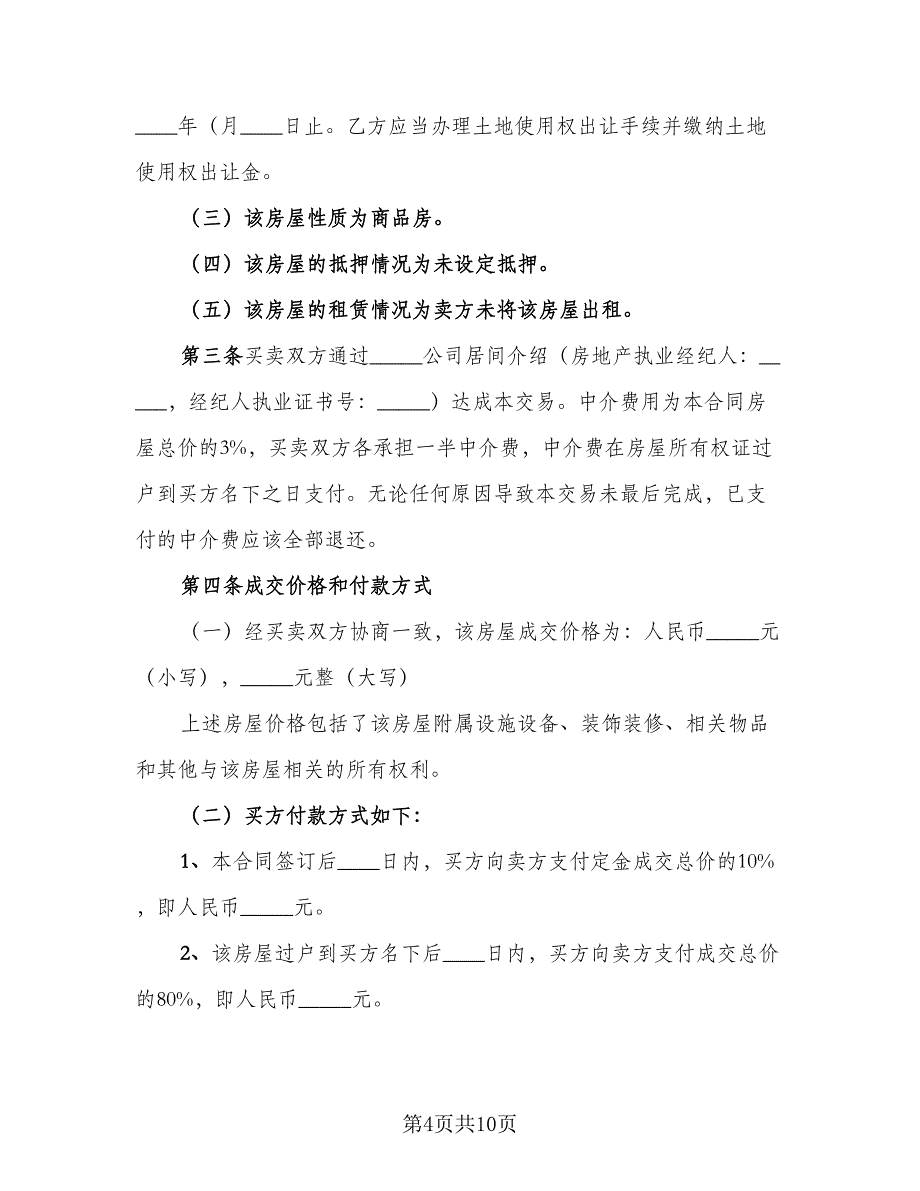 ____年（月____日止。乙方应当办理土地使用权出让手续并缴纳土地
使用权出让金。
（三）该房屋性质为商品房。
（四）该房屋的抵押情况为未设定抵押。
（五）该房屋的租赁情况为卖方未将该房屋出租。
第三条买卖双方通过_____公司居间介绍（房地产执业经纪人：__
___，经纪人执业证书号：_____）达成本交易。中介费用为本合同房
屋总价的3%，买卖双方各承担一半中介费，中介费在房屋所有权证过
户到买方名下之日支付。无论任何原因导致本交易未最后完成，已支
付的中介费应该全部退还。
第四条成交价格和付款方式
（一）经买卖双方协商一致，该房屋成交价格为：人民币_____元
（小写），_____元整（大写）
上述房屋价格包括了该房屋附属设施设备、装饰装修、相关物品
和其他与该房屋相关的所有权利。
（二）买方付款方式如下：
1、本合同签订后____日内，买方向卖方支付定金成交总价的10%
，即人民币_____元。
2、该房屋过户到买方名下后____日内，买方向卖方支付成交总价
的80%，即人民币_____元。
第4页共10页